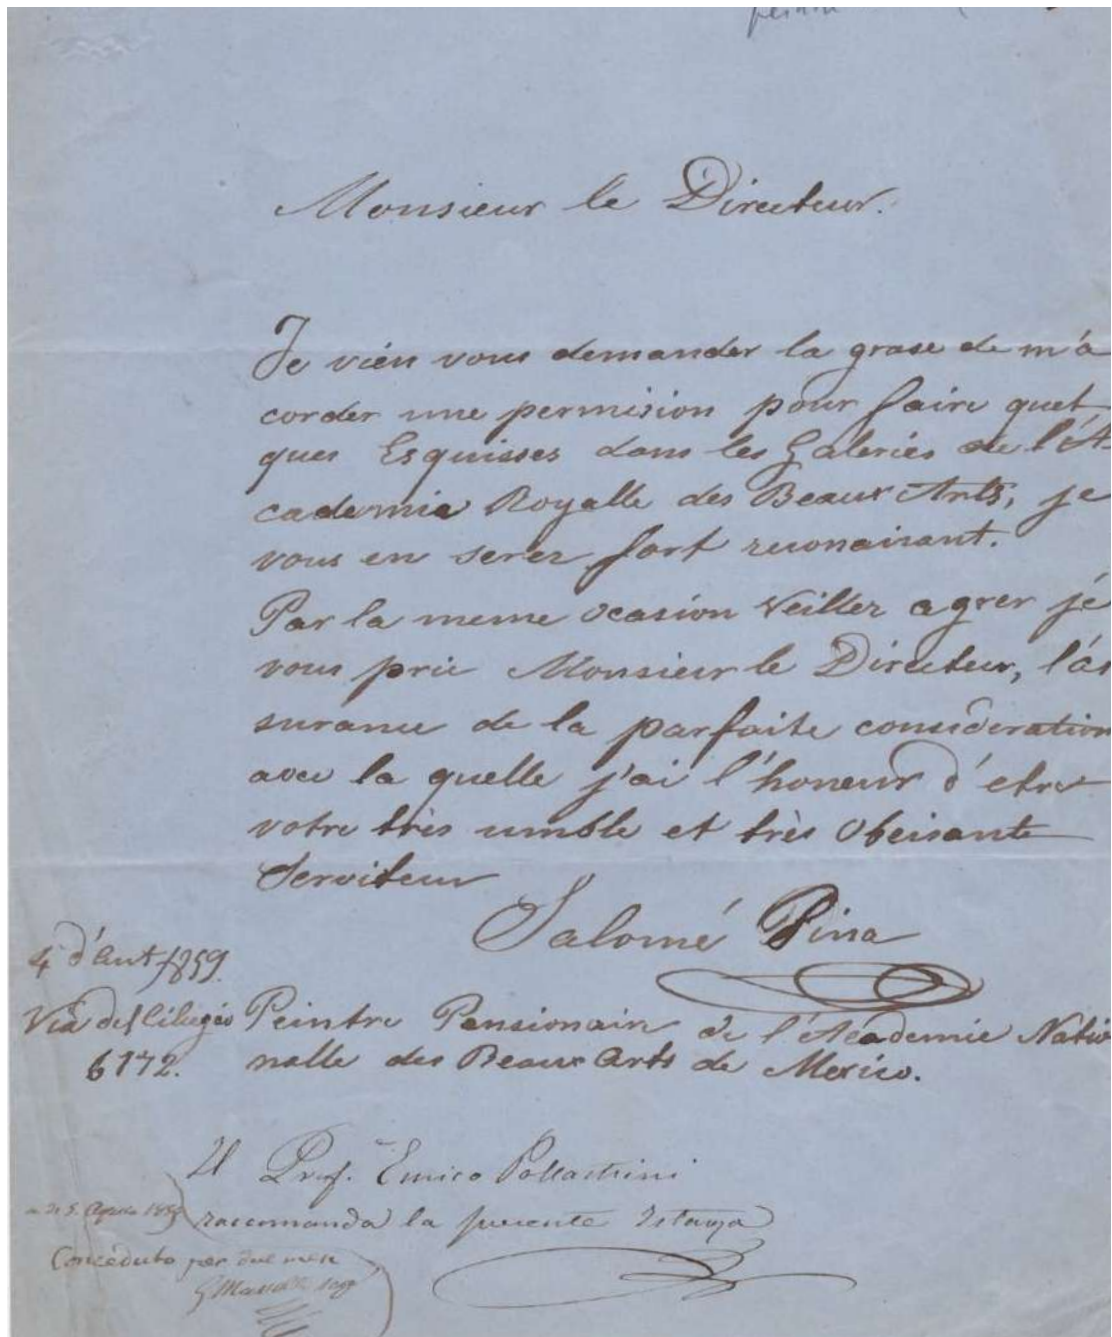 Monsieur le Directeur.
Je vién vous demander la grase de m'a
corder une permision pour faire quel
ques Esquisses dans les Galeries de l'A
cademia Royalle des Beaux Arts, je
vous en serez fort reconaisant.
Par la meme ocasion Veillez agrer je
vous prie Monsieur le Directeur, l'as
surance de la parfaite consideration
avec la quelle j'ai l'honeur d'etre
votre très umble et très Obeisante
Serviteur
Salomé Pina
4 d'Aut 1859.
Via del Ciliegio
6172.
Peintre Pensionain de l'Academie Natio
nalle des Beaux Arts de Mexico.
Il Prof. Enrico Pollastrini
raccomanda la presente Istanza
5. Agosto 1859
Conceduto per due mesi